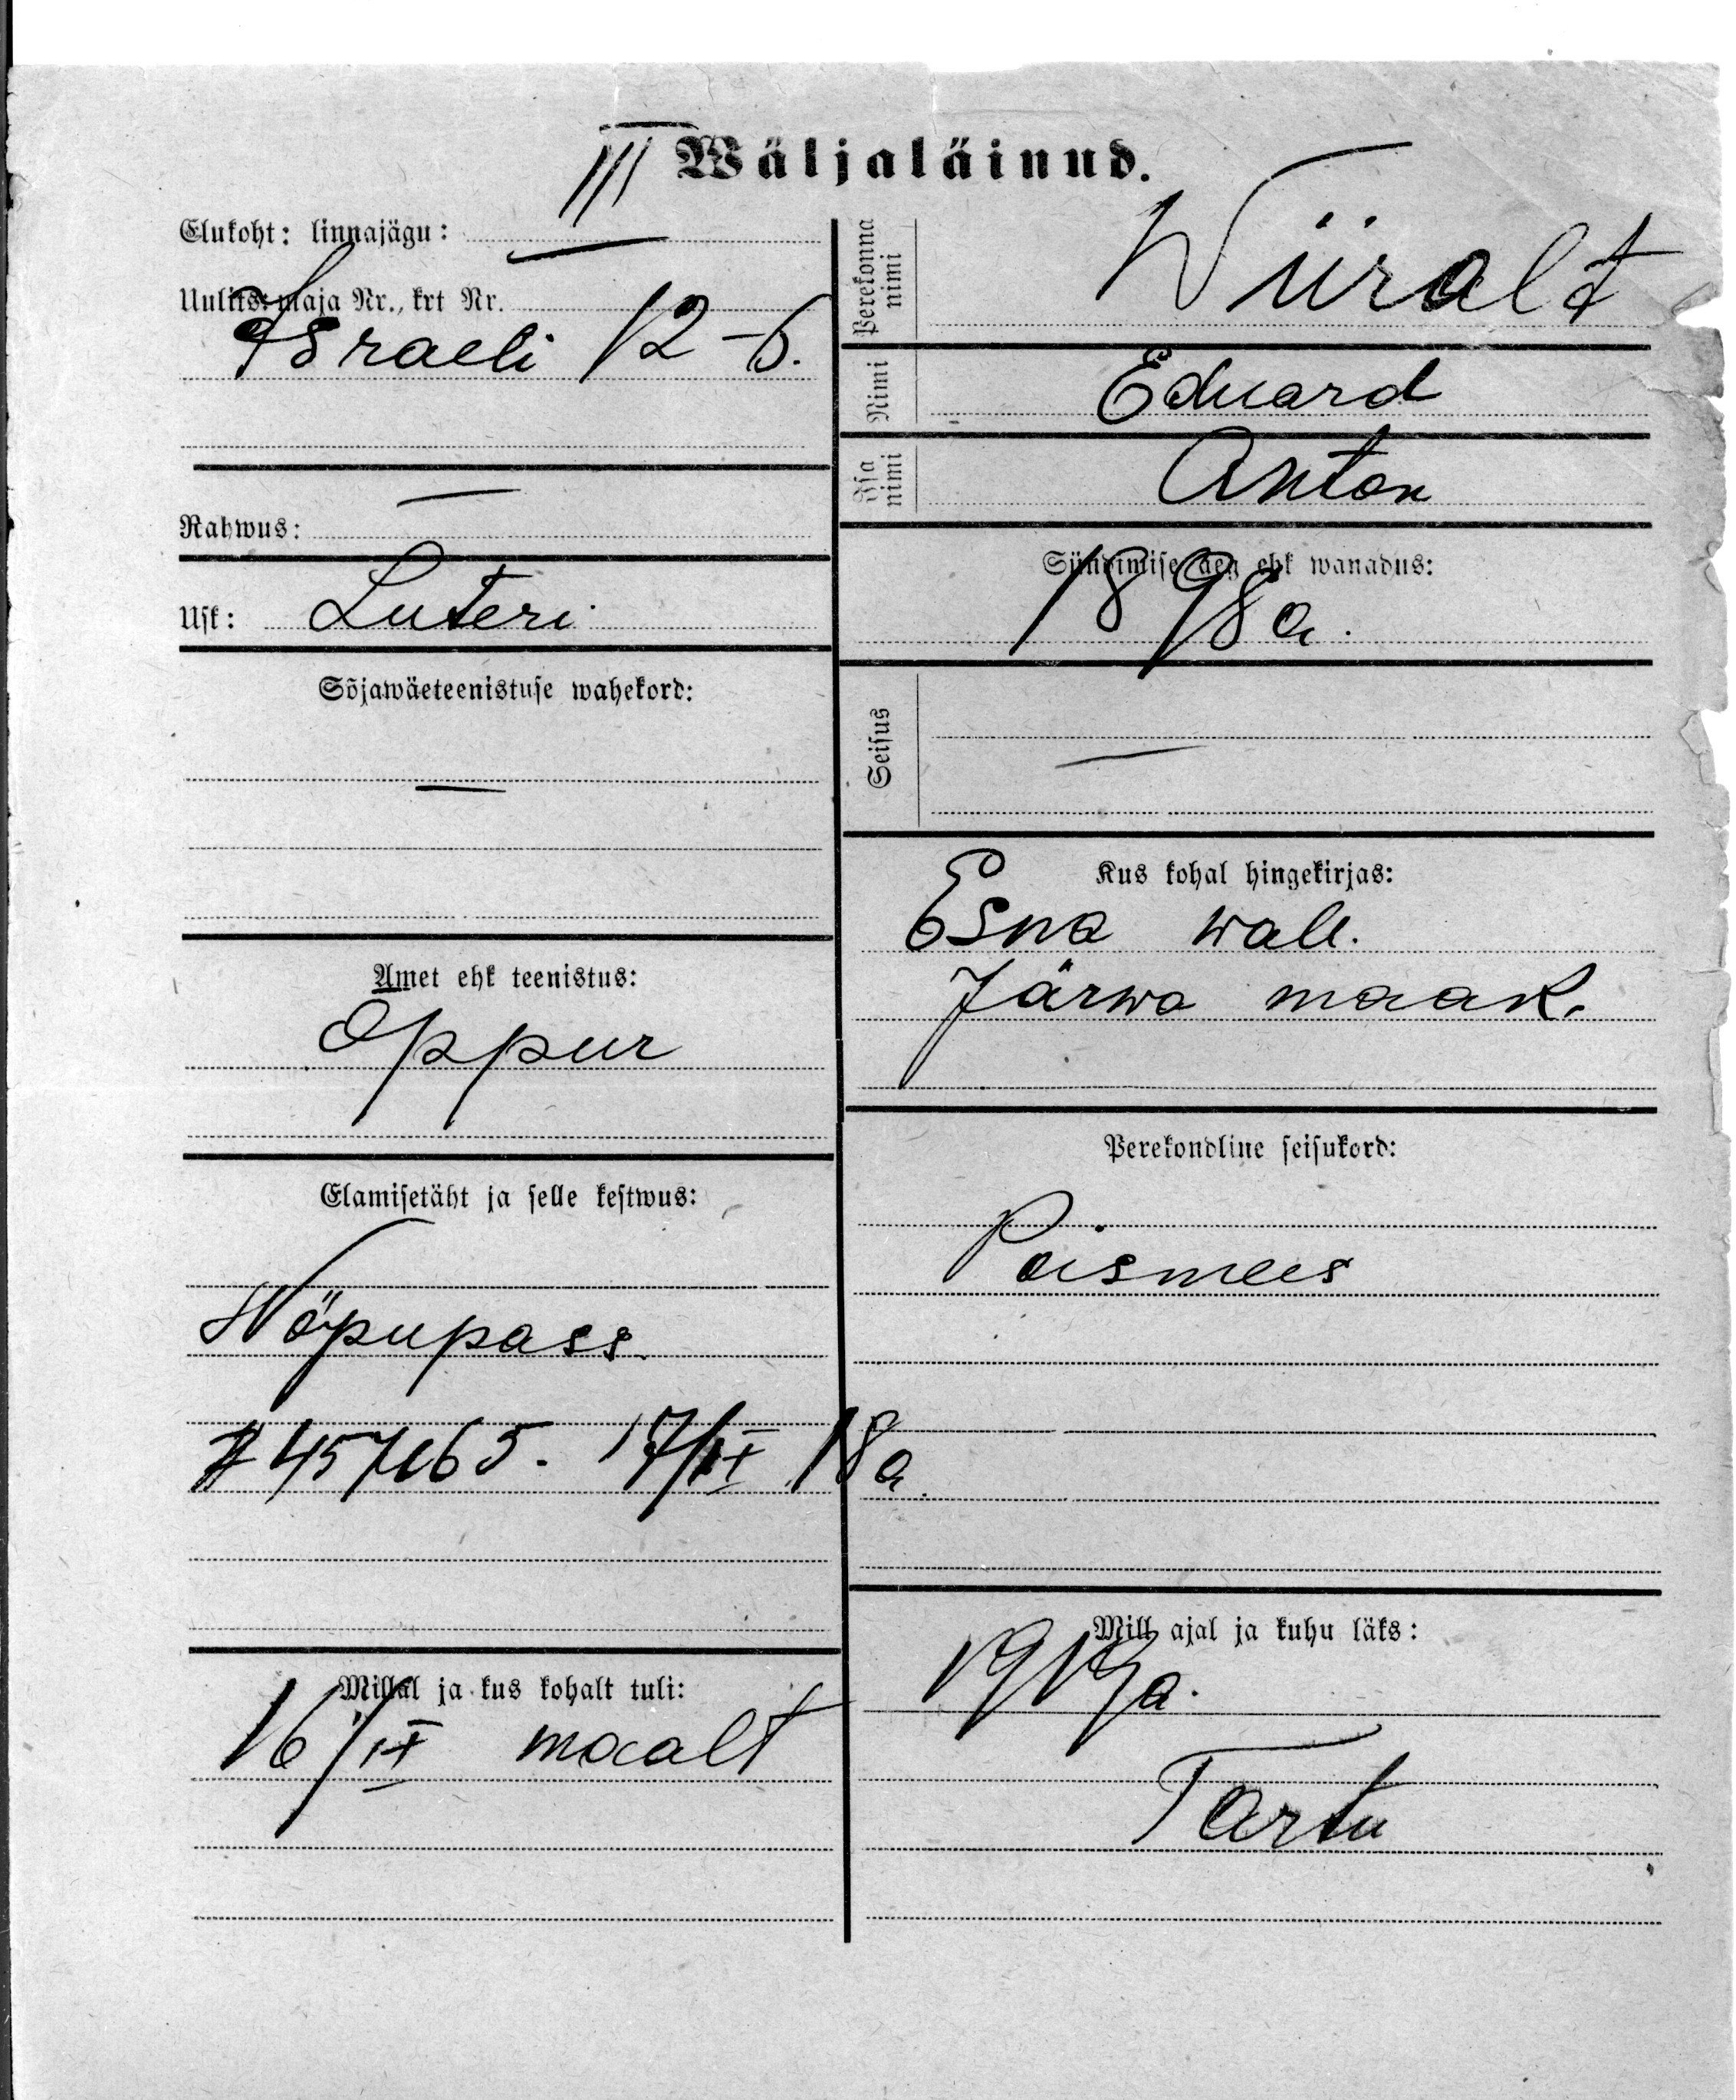 Wäljaläinud.
Elukoht: linnajägu: III
Uulits: maja Nr., krt Nr.
Israeli 12-6.
Rahwus: —
Usk: Luteri
Sõjawäeteenistuse wahekord:
—
Amet ehk teenistus:
Oppur
Elamisetäht ja selle kestwus:
Nöpupass.
17/IX 18a.
Millal ja kus kohalt tuli:
16/IX maalt
Perekonna nimi
Wiiralt
Nimi
Eduard
Isa nimi
Anton
Sündimise aeg ehk wanadus:
1898a.
Seisus
—
Kus kohal hingekirjas:
Esna wall.
Järwa maak.
Perekondline seisukord:
Poismees
Mill ajal ja kuhu läks:
1919a.
Tartu